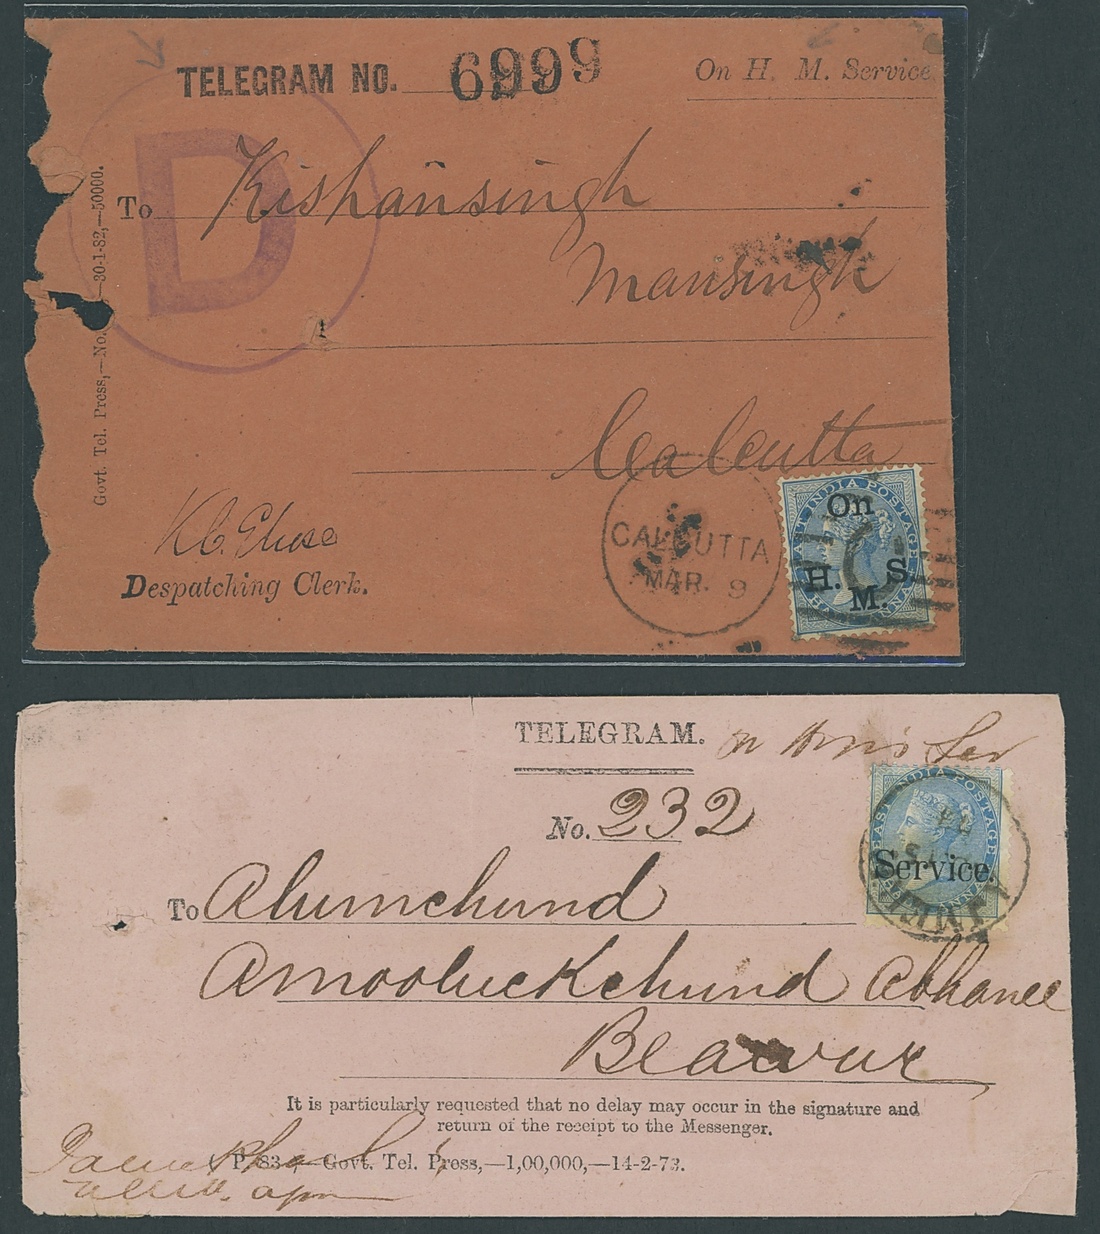 TELEGRAM NO. 6999
On H. M. Service
D
To Kishansingh
Mansingh
Govt. Tel. Press,—No. —30-1-82,—50000.
Calcutta
Despatching Clerk.
CALCUTTA
MAR. 9
EAST INDIA POSTAGE
On
H. S.
M.
HALF ANNA
TELEGRAM.
No. 232
EAST INDIA POSTAGE
Service.
To Alumchund
Amooluckchund Abhanee
Beawur
It is particularly requested that no delay may occur in the signature and
return of the receipt to the Messenger.
P 83 Govt. Tel. Press,—1,00,000,—14-2-73.